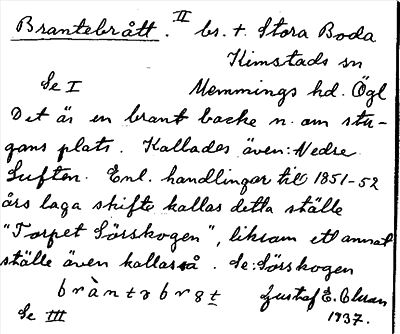 Brantebrått. II br. t. Stora Boda
Kimstads sn
Se I Memmings hd. Ögl
Det är en brant backe n. om stu-
gans plats. Kallades även: Nedre
Luften. Enl. handlingar till 1851-52
års laga skifte kallas detta ställe
"Torpet Sörskogen", liksom ett annat
ställe även kallas så. Se: Sörskogen
Gustaf E. 
Se III 1937.